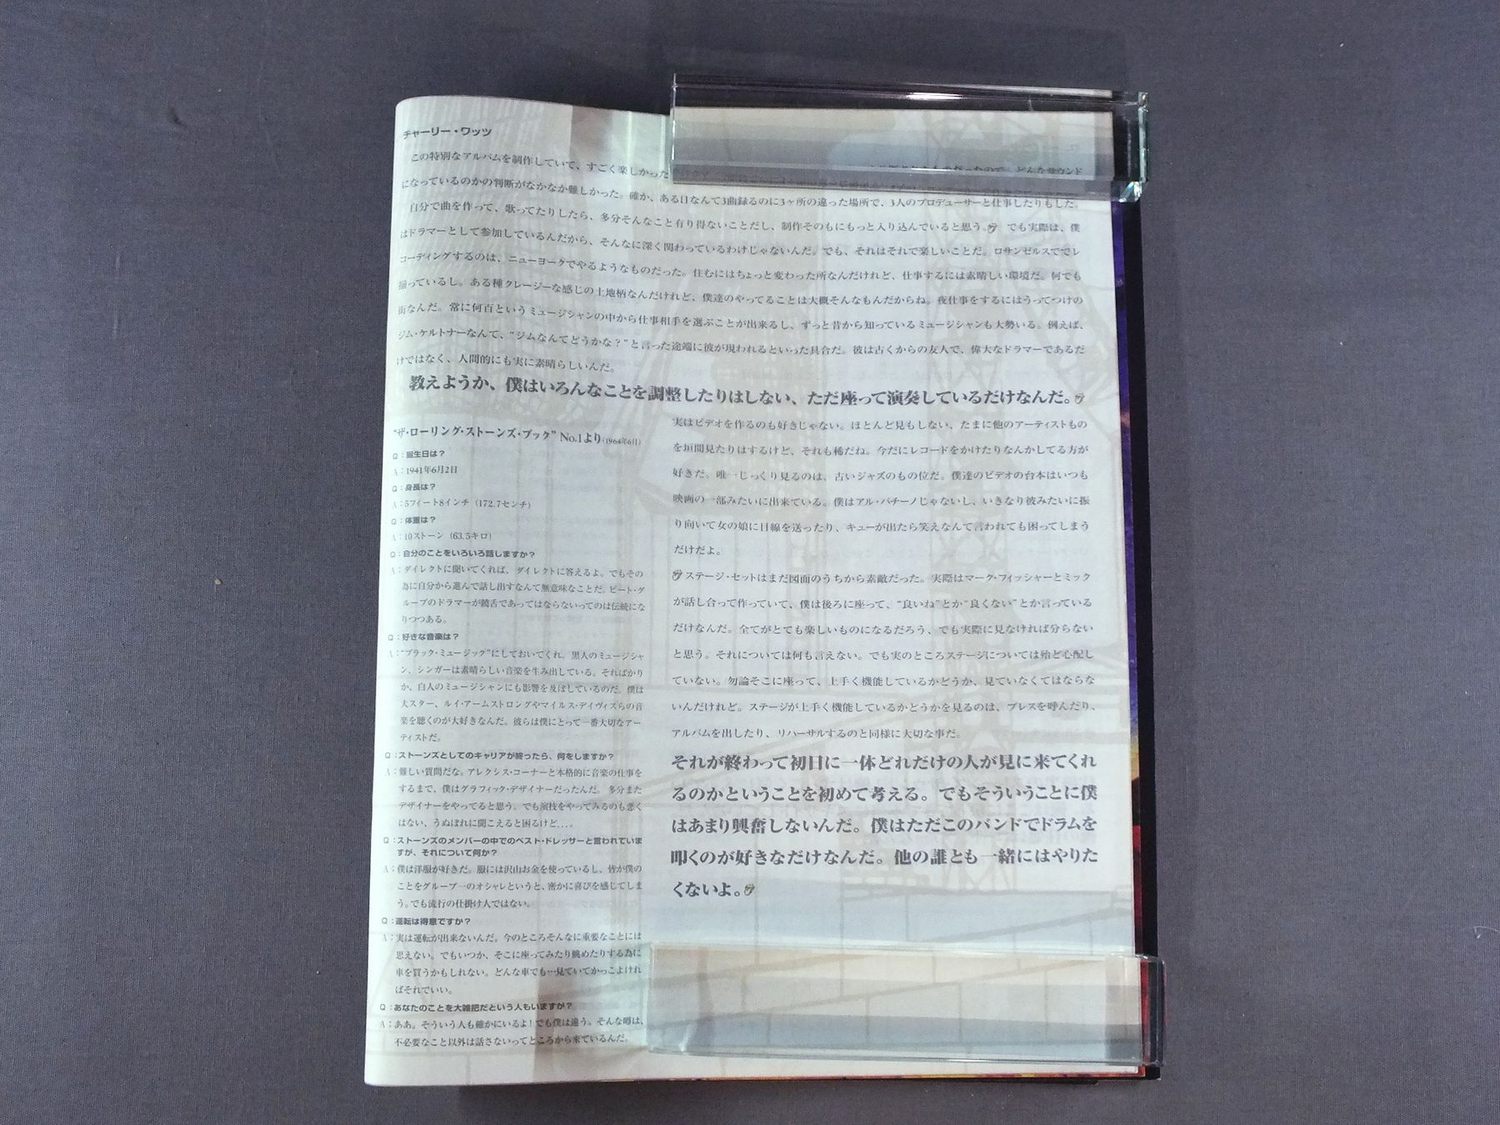 チャーリー・ワッツ
この特別なアルバムを制作していて、すごく楽しかった
どんなサウンド
になっているのかの判断がなかなか難しかった。確か、ある日なんて3曲録るのに3ヶ所の違った場所で、3人のプロデューサーと仕事したりもした。
自分で曲を作って、歌ってたりしたら、多分そんなこと有り得ないことだし、制作そのものにもっと入り込んでいると思う。でも実際は、僕
はドラマーとして参加しているんだから、そんなに深く関わっているわけじゃないんだ。でも、それはそれで楽しいことだ。ロサンゼルスででレ
コーディングするのは、ニューヨークでやるようなものだった。住むにはちょっと変わった所なんだけれど、仕事するには素晴しい環境だ。何でも
揃っているし。ある種クレージーな感じの土地柄なんだけれど、僕達のやってることは大概そんなもんだからね。夜仕事をするにはうってつけの
街なんだ。常に何百というミュージシャンの中から仕事相手を選ぶことが出来るし、ずっと昔から知っているミュージシャンも大勢いる。例えば、
ジム・ケルトナーなんて、“ジムなんてどうかな?”と言った途端に彼が現われるといった具合だ。彼は古くからの友人で、偉大なドラマーであるだ
けではなく、人間的にも実に素晴らしいんだ。
教えようか、僕はいろんなことを調整したりはしない、ただ座って演奏しているだけなんだ。
“ザ・ローリング・ストーンズ・ブック” No.1より(1964年6月)
Q:誕生日は?
A:1941年6月2日
Q:身長は?
A:5フィート8インチ(172.7センチ)
Q:体重は?
A:10ストーン(63.5キロ)
Q:自分のことをいろいろ話しますか?
A:ダイレクトに聞いてくれば、ダイレクトに答えるよ。でもその
為に自分から進んで話し出すなんて無意味なことだ。ビート・グ
ループのドラマーが饒舌であってはならないってのは伝統にな
りつつある。
Q:好きな音楽は?
A:“ブラック・ミュージック”にしておいてくれ。黒人のミュージシャ
ン、シンガーは素晴らしい音楽を生み出している。そればかり
か、白人のミュージシャンにも影響を及ぼしているのだ。僕は
大スター、ルイ・アームストロングやマイルス・デイヴィスらの音
楽を聴くのが大好きなんだ。彼らは僕にとって一番大切なアー
ティストだ。
Q:ストーンズとしてのキャリアが終ったら、何をしますか?
A:難しい質問だな。アレクシス・コーナーと本格的に音楽の仕事を
するまで、僕はグラフィック・デザイナーだったんだ。多分また
デザイナーをやってると思う。でも演技をやってみるのも悪く
はない、うぬぼれに聞こえると困るけど…。
Q:ストーンズのメンバーの中でのベスト・ドレッサーと言われていま
すが、それについて何か?
A:僕は洋服が好きだ。服には沢山お金を使っているし、皆が僕の
ことをグループ一のオシャレというと、密かに喜びを感じてしま
う。でも流行の仕掛け人ではない。
Q:運転は得意ですか?
A:実は運転が出来ないんだ。今のところそんなに重要なことには
思えない。でもいつか、そこに座ってみたり眺めたりする為に
車を買うかもしれない。どんな車でも…見ていてかっこよけれ
ばそれでいい。
Q:あなたのことを大雑把だという人もいますが?
A:ああ。そういう人も確かにいるよ!でも僕は違う。そんな噂は、
不必要なこと以外は話さないってところから来ているんだ。
実はビデオを作るのも好きじゃない。ほとんど見もしない、たまに他のアーティストもの
を垣間見たりはするけど、それも稀だね。今だにレコードをかけたりなんかしてる方が
好きだ。唯一じっくり見るのは、古いジャズのもの位だ。僕達のビデオの台本はいつも
映画の一部みたいに出来ている。僕はアル・パチーノじゃないし、いきなり彼みたいに振
り向いて女の娘に目線を送ったり、キューが出たら笑えなんて言われても困ってしまう
だけだよ。
ステージ・セットはまだ図面のうちから素敵だった。実際はマーク・フィッシャーとミック
が話し合って作っていて、僕は後ろに座って、“良いね”とか“良くない”とか言っている
だけなんだ。全てがとても楽しいものになるだろう、でも実際に見なければ分らない
と思う。それについては何も言えない。でも実のところステージについては殆ど心配し
ていない。勿論そこに座って、上手く機能しているかどうか、見ていなくてはならな
いんだけれど。ステージが上手く機能しているかどうかを見るのは、プレスを呼んだり、
アルバムを出したり、リハーサルするのと同様に大切な事だ。
それが終わって初日に一体どれだけの人が見に来てくれ
るのかということを初めて考える。でもそういうことに僕
はあまり興奮しないんだ。僕はただこのバンドでドラムを
叩くのが好きなだけなんだ。他の誰とも一緒にはやりた
くないよ。